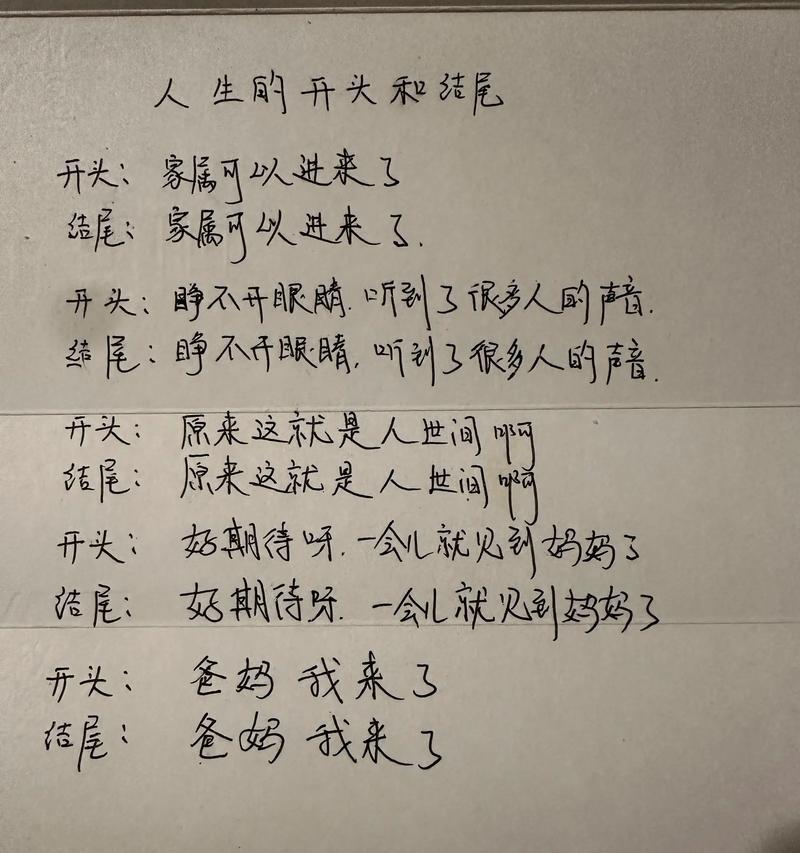 人生的开头和结尾
开头：家属可以进来了
结尾：家属可以进来了.
开头：睁不开眼睛.听到了很多人的声音.
结尾：睁不开眼睛,听到了很多人的声音.
开头：原来这就是人世间啊
结尾：原来这就是人世间啊
开头：好期待呀.一会儿就见到妈妈了
结尾：好期待呀.一会儿就见到妈妈了
开头：爸妈 我来了
结尾：爸妈 我来了